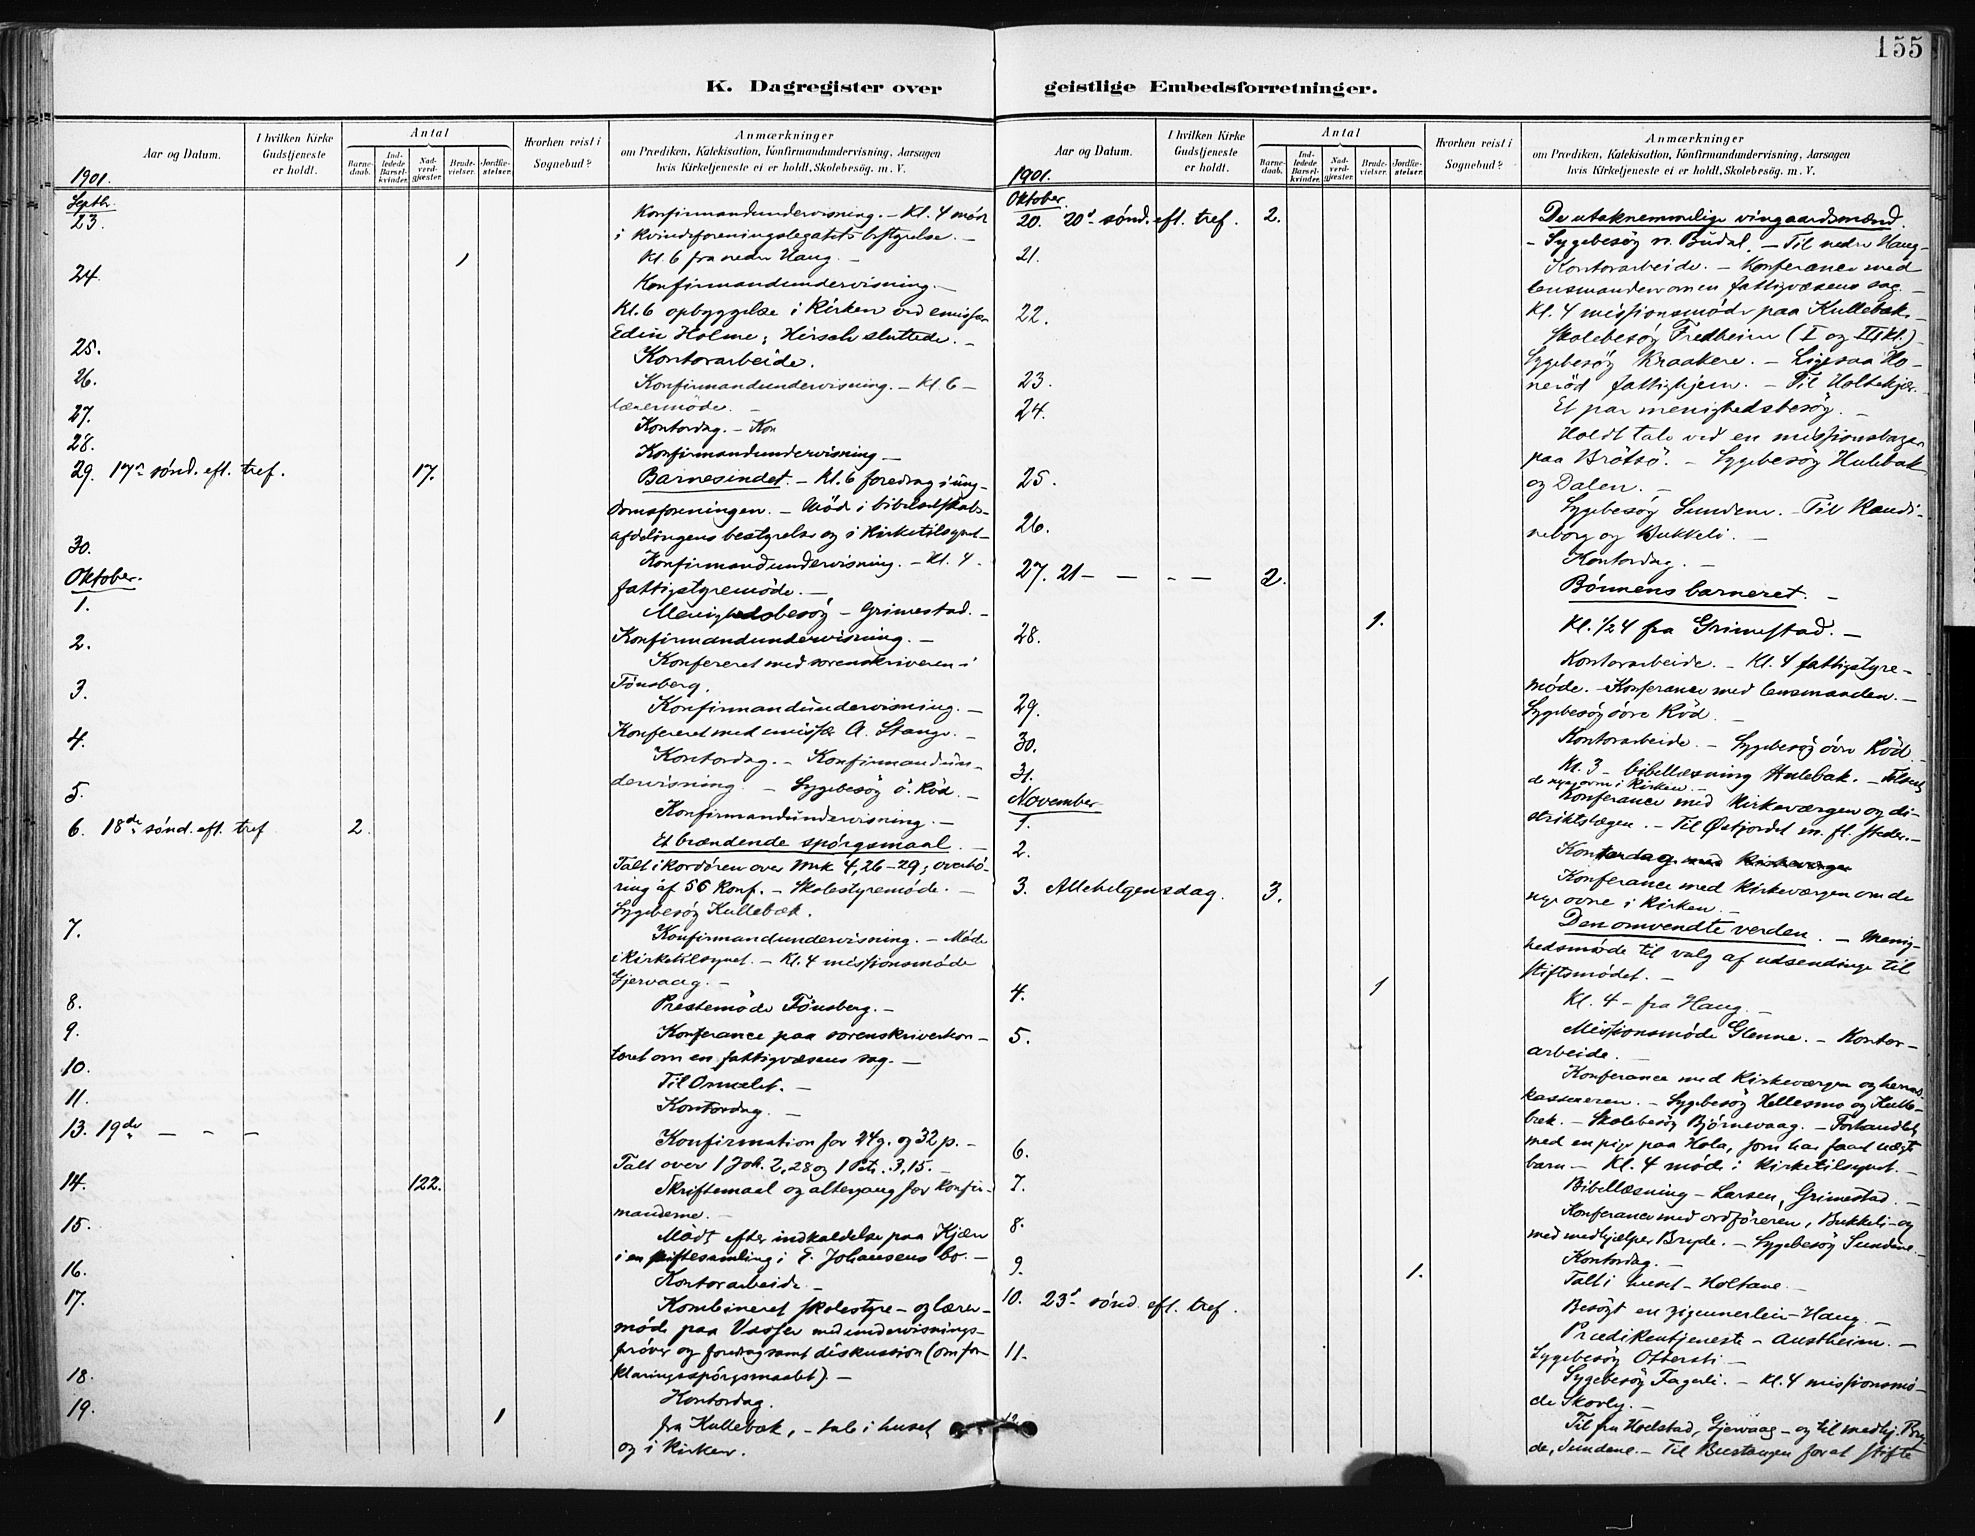 155
K. Dagregister over geistlige Embedsforretninger.
Aar og Datum.
I hvilken Kirke Gudstjeneste er holdt.
Antal
Barnedaab.
Indledede Barselkvinder.
Nadverdgjæster.
Brudevielser.
Jordfæstelser.
Hvorhen reist i Sognebud?
Anmærkninger
om Prædiken, Katekisation, Konfirmandundervisning, Aarsagen
hvis Kirketjeneste ei er holdt, Skolebesøg. m. V.
1901.
Septbr.
23. Konfirmandundervisning. – Kl. 4 møde
i kvindeforeningslegatets bestyrelse. –
1 Kl. 6 fra nedre Haug. –
24. Konfirmandundervisning. –
Kl. 6 opbyggelse i kirken ved emissær
Edin Holme; Hirsch sluttede. –
25. Kontorarbeide.
26. Konfirmandundervisning. – Kl. 6 –
lærermøde. –
27. Kontordag. – Kon
28. Konfirmandundervisning –
29. 17de sønd. eft. tref. 17. Barnesindet. – Kl. 6 foredrag i ung-
domsforeningen. – Møde i bibelselskabs-
afdelingens bestyrelse og i kirketilsynet –
30. Konfirmandundervisning. – Kl. 4
fattigstyremøde. –
Oktober.
1. Menighedsbesøg – Grimestad. –
Konfirmandundervisning. –
2. Konfereret med sorenskriveren i
Tønsberg.
3. Konfirmandundervisning. –
Konfereret med emissær A. Stange. –
4. Kontordag. – Konfirmandun-
dervisning. – Sygebesøg ö. Röd. –
5. Konfirmandundervisning. –
6. 18de sønd. eft. tref 2. Et brændende spørgsmaal. –
Talt i kordøren over Mrk 4,26–29; overhö-
ring af 56 konf. – Skolestyremøde. –
Sygebesøg Kullebæk.
7. Konfirmandundervisning. – Møde
i kirketilsynet. – Kl. 4 missionsmøde
Gjervaag. –
8. Prestemøde Tønsberg. –
9. Konferance paa sorenskriverkon-
toret om en fattigvæsens sag. –
10. Til Ormelet. –
11. Kontordag. –
13. 19de – – – Konfirmation for 24 g. og 32 p. –
Talt over 1 Joh. 2,28 og 1 Petr. 3,15. –
14. 122. Skriftemaal og altergang for konfir-
manderne. –
15. Mødt efter indkaldelse paa Kjær
i en skiftesamling i E. Johansens bo. –
16. Kontorarbeide –
17. Kombineret skolestyre – og lærer-
møde paa Vasser med undervisnings-
prøver og foredrag samt diskussion (om for-
klaringsspørgsmaalet). –
18. Kontordag.
19. 1 fra Kullebæk, – tale i huset
og i kirken.
Aar og Datum.
I hvilken Kirke Gudstjeneste er holdt.
Antal
Barnedaab.
Indledede Barselkvinder.
Nadverdgjæster.
Brudevielser.
Jordfæstelser.
Hvorhen reist i Sognebud?
Anmærkninger
om Prædiken, Katekisation, Konfirmandundervisning, Aarsagen
hvis Kirketjeneste ei er holdt, Skolebesøg. m. V.
1901.
Oktober.
20. 20de sønd. eft. tref. 2. De utaknemmelige vingaardsmænd.
– Sygebesøg n. Budal. – Til nedre Haug –
21. Kontorarbeide. – Konferance med
lensmanden om en fattigvæsens sag. –
22. Kl. 4 missionsmøde paa Kullebæk.
Skolebesøg Fredheim (I og II kl.) –
Sygebesøg Kraakere. – Ligesaa Ho-
neröd fattighjem. – Til Holtekjær.
23. Et par menighedsbesøg. –
24. Holdt tale ved en missionsbazar
paa Brøtsø. – Sygebesøg Hulebak
og Dalen. –
25. Sygebesøg Sundene. – Til Randi-
neborg og Bukkeli. –
26. Kontordag. –
27. 21 – – – – 2. Bönnens barneret. –
1. Kl. 1/2 4 fra Grimestad. –
28. Kontorarbeide. – Kl. 4 fattigstyre-
møde. – Konferance med lensmanden. –
Sygebesøg øvre Röd. –
29. Kontorarbeide. – Sygebesøg øvre Röd.
30. Kl. 3 – bibellæsning Hulebak. –
de nye ovne i kirken. –
31. Konferance med kirkeværgen og di-
striktslægen. – Til Østfjordet m. fl. steder. –
November
1. Kontordag med kirkeværgen
2. Konferance med kirkeværgen om de
nye ovne i kirken. –
3. Allehelgensdag. 3. Den omvendte verden. – Menig-
hedsmøde til valg af udsendinge til
stiftsmødet. –
4. 1 Kl. 4 – fra Haug. –
5. Missionsmøde Glenne. – Kontor-
arbeide. –
Konferance med kirkeværgen og herreds-
kassereren. – Sygebesøg Hellesmo og Kulle-
bæk. – Skolebesøg Bjørnevaag. – Forhandlet
6. med en pige paa Hola, som har faaet uægte
barn – Kl. 4 møde i kirketilsynet. –
7. Bibellæsning – Larsen, Grimestad. –
8. Konferance med ordføreren, Bukkeli – og
med medhjælper Bryde. – Sygebesøg Sundene. –
Kontordag. –
9. 1. Talt i huset – Holtane. –
10. 23de sønd. eft. tref. Besøgt en zigeunerleir – Haug. –
Prædikentjeneste – Austheim. –
11. Sygebesøg Ottersti –
Sygebesøg Fagerli. – Kl. 4 missionsmø-
de Skovly. –
12. Til fru Hodstad, Gjervaag – og til medhj. Bry-
de, Sundene. – Til Bustangen for at skifte